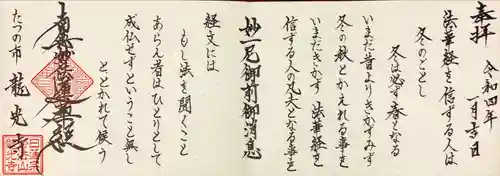 奉拝
令和四年
一月吉日
法華経を信ずる人は
冬のごとし
冬は必ず春となる
いまだ昔よりきかずみず
冬の秋とかえれる事を
いまだきかず 法華経を
信ずる人の凡夫となる事を
妙一尼御前御消息
経文には
もし法を聞くこと
あらん者はひとりとして
成仏せずということ無し
ととかれて候う
南無妙法蓮華経
たつの市 龍光寺